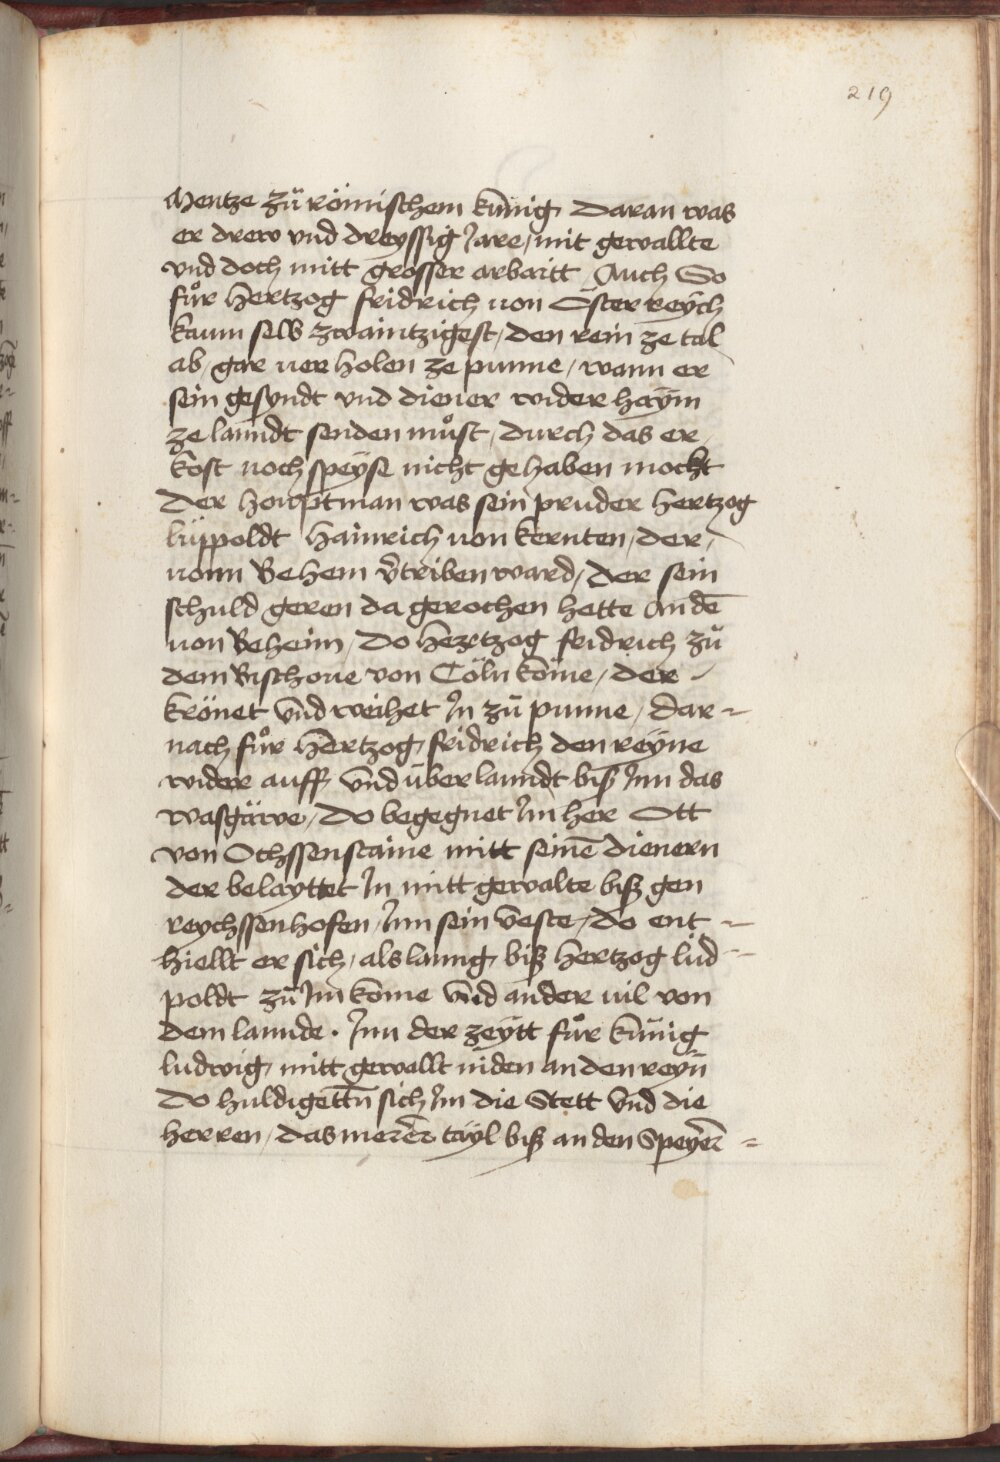 219
Mentze zů römischem künig daran was
er drew vnd dreyssig Jare / mit gewallte
vnd doch mitt grosser arbaitt Auch So
fůr Hertzog fridrich von Österreych
kaum selb zwaintzigest / den rein ze tal
ab / gar verholen ze punne / wann er
sein gesyndt vnd diener wider haÿm
ze lanndt senden můst / durch das er /
kost noch speyse nicht gehaben mocht
Der houptman was sein pruder Hertzog
lüppoldt Hainrich von kernten / der /
vonn Behem v̄triben ward / der sein
schuld geren da gerochen hette an dē
von Beheim / Do Hertzog fridrich zů
dem Bischoue von Cöln köme / der
krönet vnd weihet Jn zů punne / dar=
nach fůr Hertzog fridrich den reyne
wider auff vnd über lanndt biß Jnn das
wasgäwe / Do begegnet Jm her Ott
von Ochssenstaine mitt seinē dienern
der belayttet Jn mitt gewalte biß gen
reychssenhofen / Jnn sein veste / do ent=
hiellt er sich / als lanng biß Hertzog lüd=
poldt zů Jm köme vnd ander vil von
dem lannde . Jnn der zeytt fůr künig
ludwig mitt gewallt niden an den reyn
Do huldigettn̄ sich Jm die Stett vnd die
herren / das merer tayl biß an den Speyer=